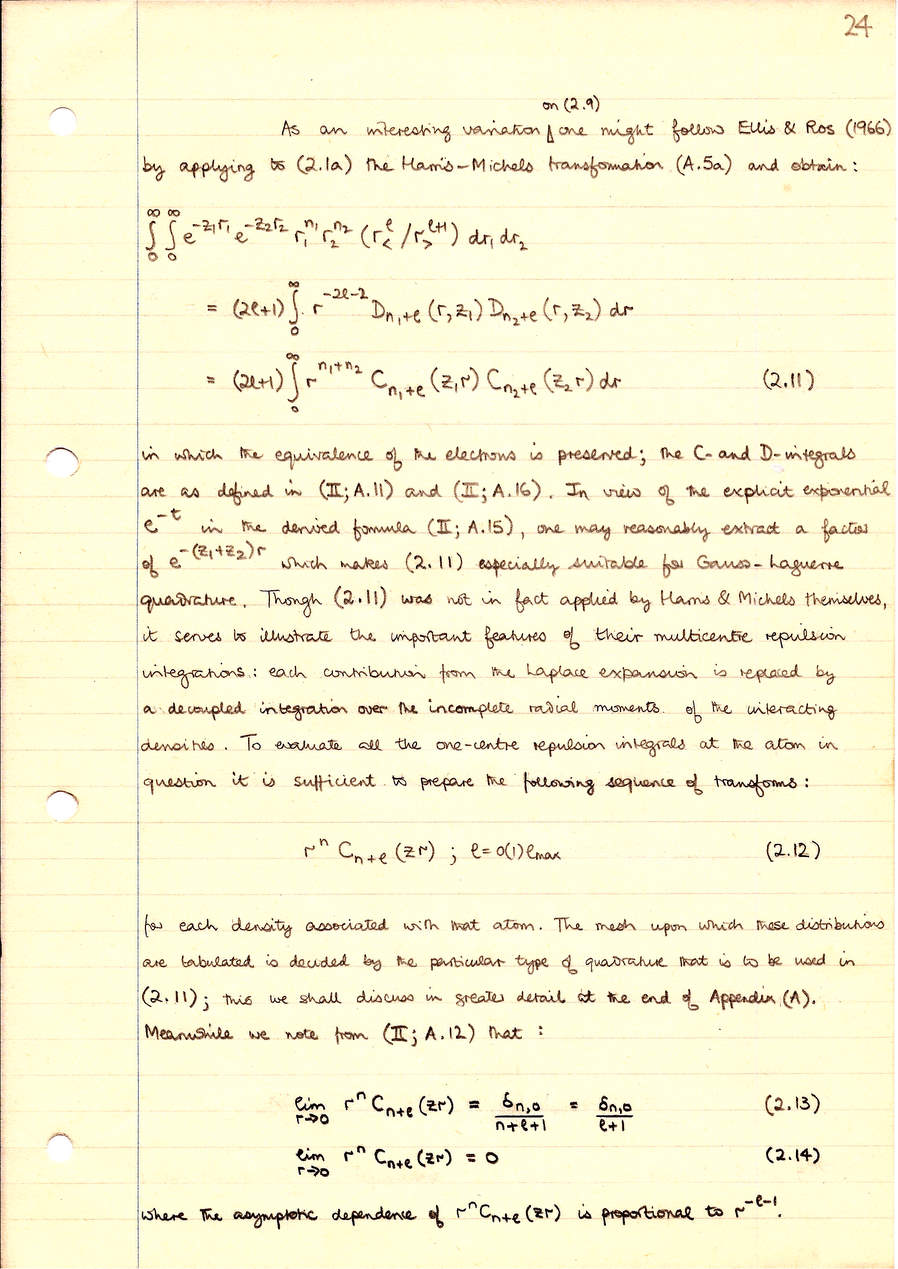 24
on (2.9)
As an interesting variation one might follow Ellis & Ros (1966)
by applying to (2.1a) the Harris-Michels transformation (A.5a) and obtain:
∞ ∞
∫ ∫ e^{-z₁r₁} e^{-z₂r₂} r₁^{n₁} r₂^{n₂} (r_<^ℓ / r_>^{ℓ+1}) dr₁ dr₂
0 0
= (2ℓ+1) ∫₀^∞ r^{-2ℓ-2} D_{n₁+ℓ}(r, z₁) D_{n₂+ℓ}(r, z₂) dr
= (2ℓ+1) ∫₀^∞ r^{n₁+n₂} C_{n₁+ℓ}(z₁r) C_{n₂+ℓ}(z₂r) dr (2.11)
in which the equivalence of the electrons is preserved; the C- and D-integrals
are as defined in (II; A.11) and (II; A.16). In view of the explicit exponential
e^{-t} in the derived formula (II; A.15), one may reasonably extract a factor
of e^{-(z₁+z₂)r} which makes (2.11) especially suitable for Gauss-Laguerre
quadrature. Though (2.11) was not in fact applied by Harris & Michels themselves,
it serves to illustrate the important features of their multicentre repulsion
integrations: each contribution from the Laplace expansion is replaced by
a decoupled integration over the incomplete radial moments of the interacting
densities. To evaluate all the one-centre repulsion integrals at the atom in
question it is sufficient to prepare the following sequence of transforms:
r^n C_{n+ℓ}(zr) ; ℓ = 0(1)ℓmax (2.12)
for each density associated with that atom. The mesh upon which these distributions
are tabulated is decided by the particular type of quadrature that is to be used in
(2.11); this we shall discuss in greater detail at the end of Appendix (A).
Meanwhile we note from (II; A.12) that:
lim_{r→0} r^n C_{n+ℓ}(zr) = δ_{n,0}/(n+ℓ+1) = δ_{n,0}/(ℓ+1) (2.13)
lim_{r→0} r^n C_{n+ℓ}(zr) = 0 (2.14)
where the asymptotic dependence of r^n C_{n+ℓ}(zr) is proportional to r^{-ℓ-1}.